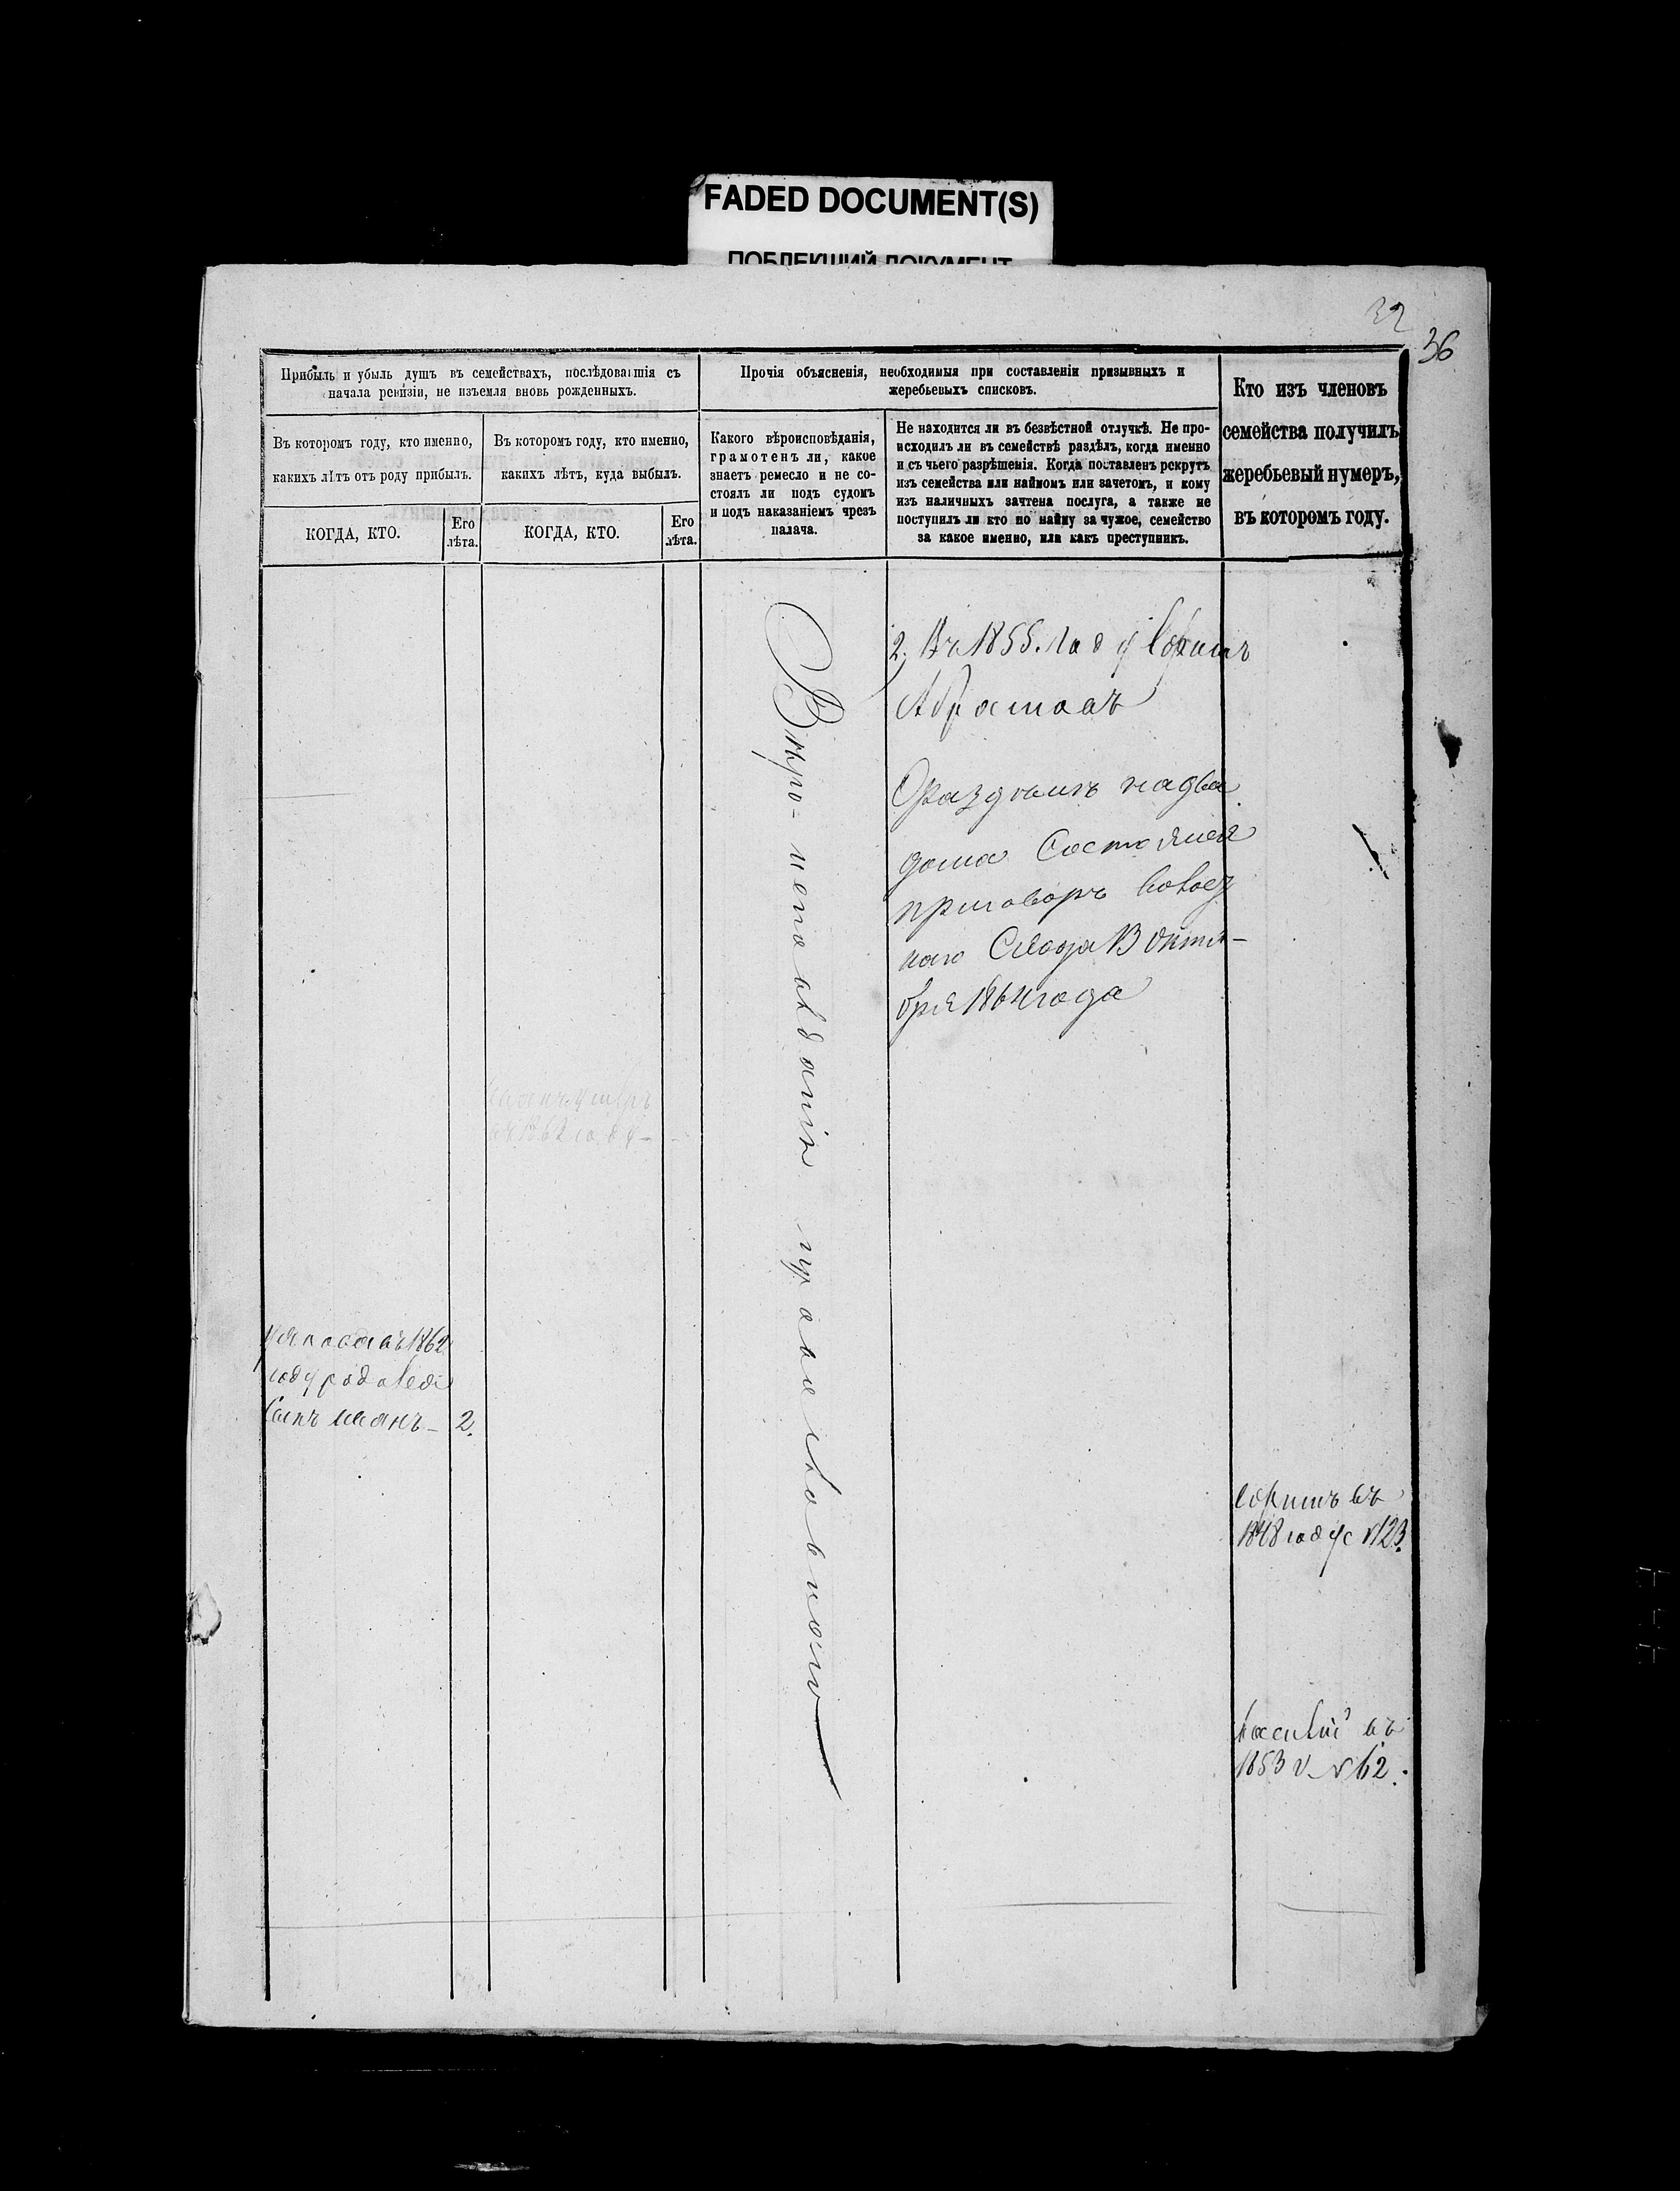 FADED DOCUMENT(S)
ПОБЛЕКШИЙ ДОКУМЕНТ
32
36
Прибыль и убыль душъ въ семействахъ, послѣдовавшія съ
начала ревизіи, не изъемля вновь рожденныхъ.
Въ которомъ году, кто именно,
какихъ лѣтъ отъ роду прибылъ.
КОГДА, КТО.
Его
лѣта.
Въ которомъ году, кто именно,
какихъ лѣтъ, куда выбылъ.
КОГДА, КТО.
Его
лѣта.
Прочія объясненія, необходимыя при составленіи призывныхъ и
жеребьевыхъ списковъ.
Какого вѣроисповѣданія,
грамотенъ ли, какое
знаетъ ремесло и не со-
стоялъ ли подъ судомъ
и подъ наказаніемъ чрезъ
палача.
Не находится ли въ безвѣстной отлучкѣ. Не про-
исходилъ ли въ семействѣ раздѣлъ, когда именно
и съ чьего разрѣшенія. Когда поставленъ рекрутъ
изъ семейства или наймомъ или зачетомъ, и кому
изъ наличныхъ зачтена послуга, а также не
поступилъ ли кто по найму за чужое, семейство
за какое именно, или какъ преступникъ.
Кто изъ членовъ
семейства получилъ
жеребьевый нумеръ,
въ которомъ году.
Вѣро-исповѣданія православнаго
2. Въ 1855. году Ефимъ
Абрамовъ
О раздѣлѣ на два
дома Состоялся
приговоръ
наго Схода 13 Октя-
бря 1864 года
умеръ
въ 1862 году -
въ 1862
году
Сынъ Иванъ - 2.
Ефимъ въ
1848 году с №123.
Василій въ
1853 №62.